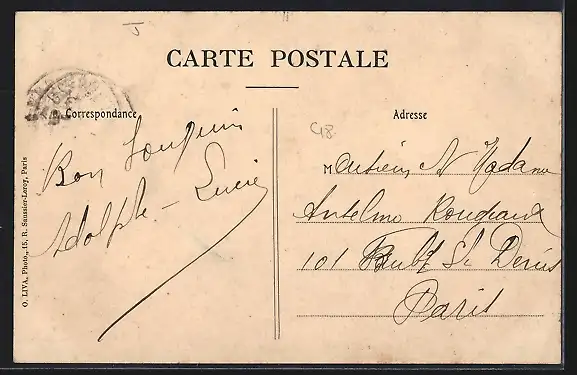 CARTE POSTALE
Correspondance
Adresse
C18
Bon Souvenir
Adolphe - Lucie
Monsieur et Madame
Anselme Rougeaux
101 Faubg St Denis
Paris
O. LIVA, Photo., 15, R. Saussier-Leroy, Paris
J